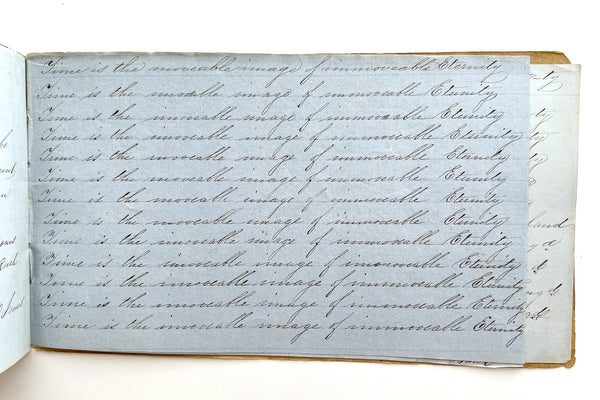 Time is the moveable image of immoveable Eternity
Time is the moveable image of immoveable Eternity
Time is the moveable image of immoveable Eternity
Time is the moveable image of immoveable Eternity
Time is the moveable image of immoveable Eternity
Time is the moveable image of immoveable Eternity
Time is the moveable image of immoveable Eternity
Time is the moveable image of immoveable Eternity
Time is the moveable image of immoveable Eternity
Time is the moveable image of immoveable Eternity
Time is the moveable image of immoveable Eternity
Time is the moveable image of immoveable Eternity
Time is the moveable image of immoveable Eternity